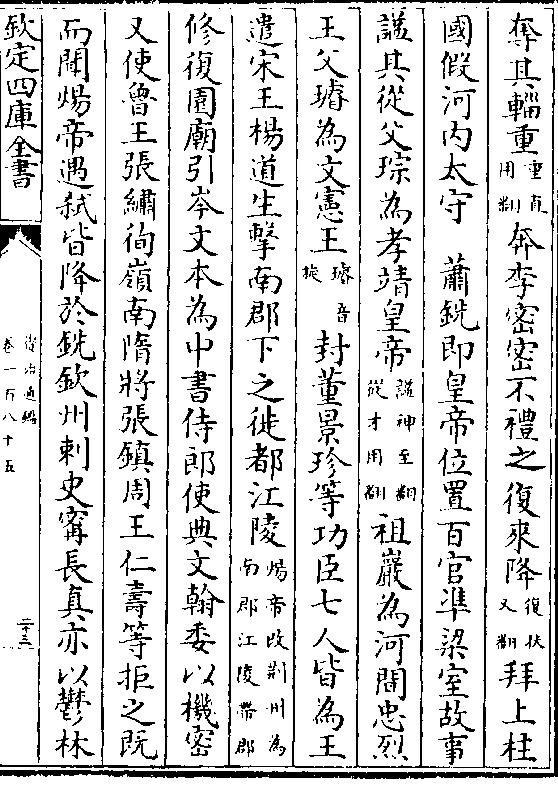 奪其輜重重直用翻奔李密密不禮之復來降復扶又翻拜上柱
國假河内太守　蕭銑即皇帝位置百官凖梁室故事
諡其從父琮為孝靖皇帝諡神至翻從才用翻祖巖為河間忠烈
王父璿為文憲王璿音旋封董景珍等功臣七人皆為王
遣宋王楊道生擊南郡下之徙都江陵煬帝改荆州為南郡江陵帶郡
修復園廟引岑文本為中書侍郎使典文翰委以機密
又使魯王張繡徇嶺南隋將張鎮周王仁壽等拒之既
而聞煬帝遇弑皆降於銑欽州刺史甯長真亦以鬱林
欽定四庫全書
資治通鑑
卷一百八十五
二十三